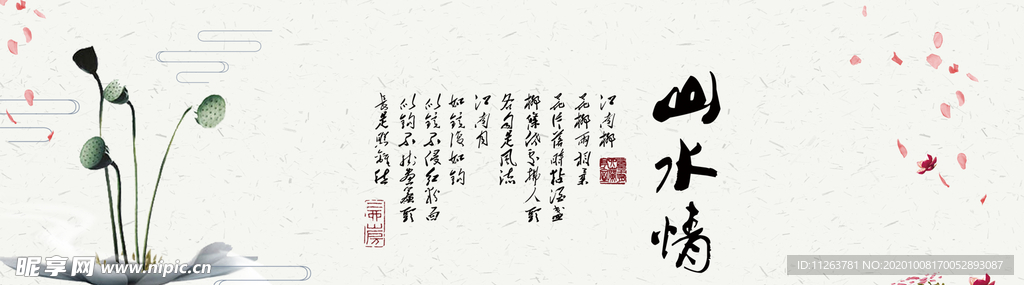 山水情
江南柳
花柳两相柔
花片落時黏酒盞
柳條低處拂人頭
各自是風流
江南月
如鏡復如鉤
似鏡不侵紅粉面
似鉤不掛畫簾頭
長是照離愁
昵享网 www.nipic.cn
ID:11263781 NO:20201008170052893087